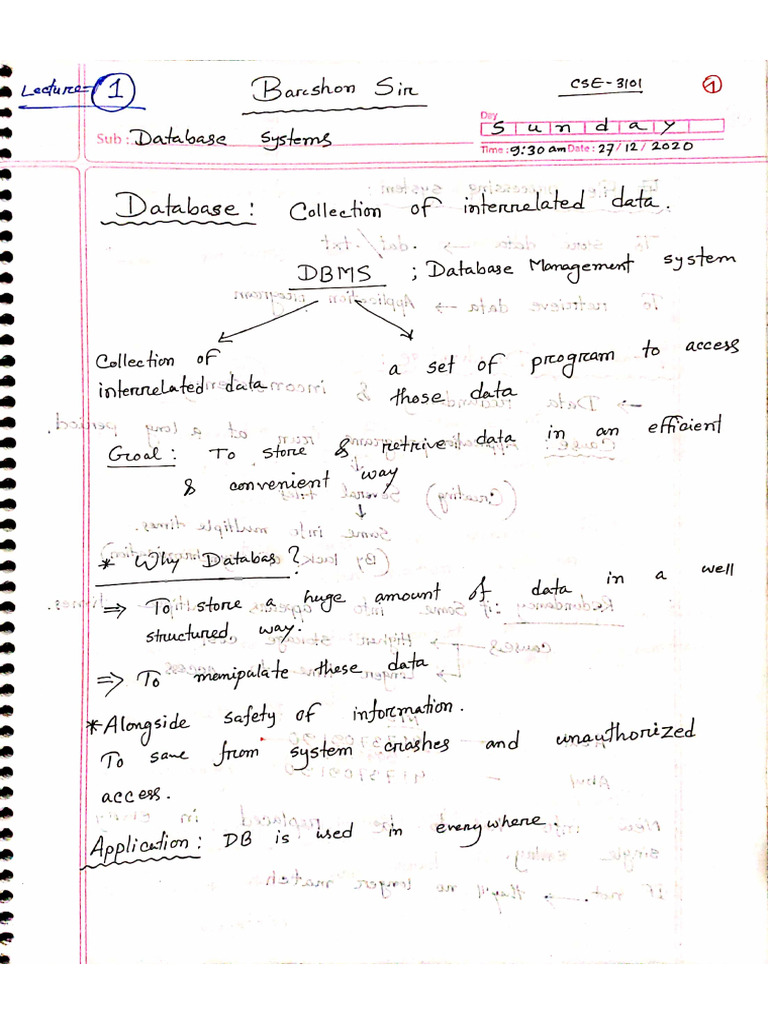 Lecture- 1
Barshon Sir
CSE-3101
1
Day
Sunday
Sub: Database Systems
Time: 9:30 am Date: 27/12/2020
Database: Collection of interrelated data.
DBMS ; Database Management system
Collection of
interrelated data
a set of program to access
those data
Goal: To store & retrive data in an efficient
& convenient way
* Why Databas?
⇒ To store a huge amount of data in a well
structured way.
⇒ To menipulate these data
* Alongside safety of information.
To save from system crashes and unauthorized
access.
Application: DB is used in everywhere.